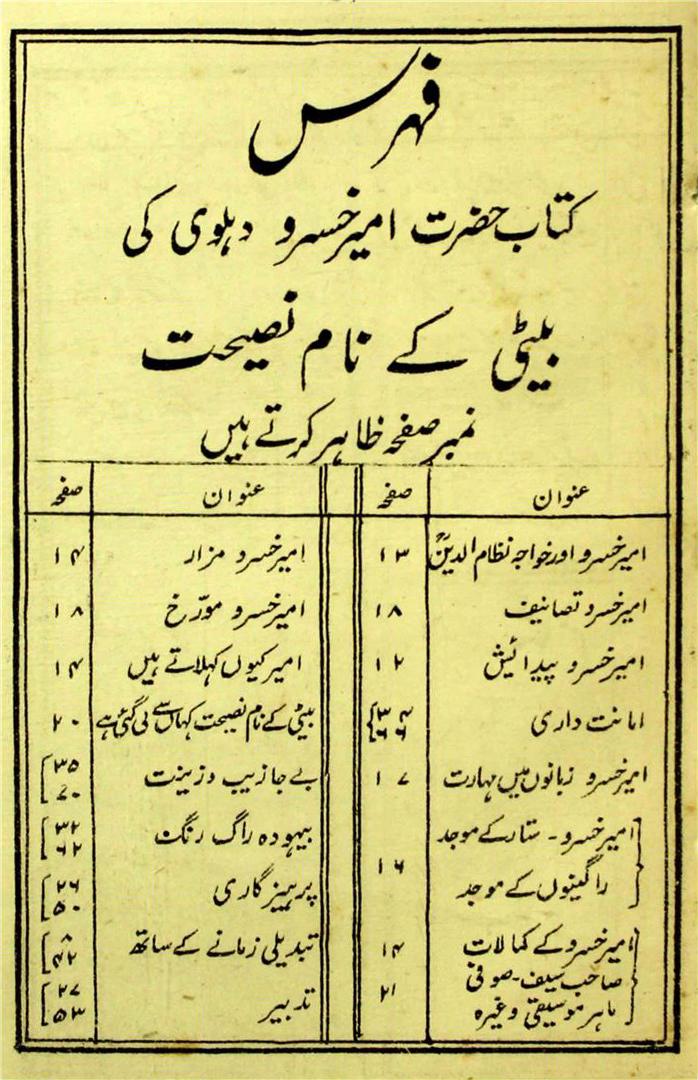 فہرس
کتاب حضرت امیر خسرو دہلوی کی
بیٹی کے نام نصیحت
نمبر صفحہ ظاہر کرتے ہیں
عنوان صفحہ
امیر خسرو اور خواجہ نظام الدینؒ ۱۳
امیر خسرو تصانیف ۱۸
امیر خسرو پیدائش ۱۲
امانت داری ۳۴ ۶۶
امیر خسرو زبانوں میں مہارت ۱۷
امیر خسرو - ستار کے موجد
راگینوں کے موجد ۱۶
امیر خسرو کے کمالات ۱۴
صاحب سیف - صوفی ۲۱
ماہر موسیقی وغیرہ
عنوان صفحہ
امیر خسرو مزار ۱۴
امیر خسرو مورّخ ۱۸
امیر کیوں کہلاتے ہیں ۱۴
بیٹی کے نام نصیحت کہاں سے لی گئی ہے ۲۰
بے جا زیب و زینت ۳۵ ۷۰
بیہودہ راگ رنگ ۳۲ ۶۲
پرہیزگاری ۲۶ ۵۰
تبدیلی زمانے کے ساتھ ۸ ۴۲
تدبیر ۲۷ ۵۳